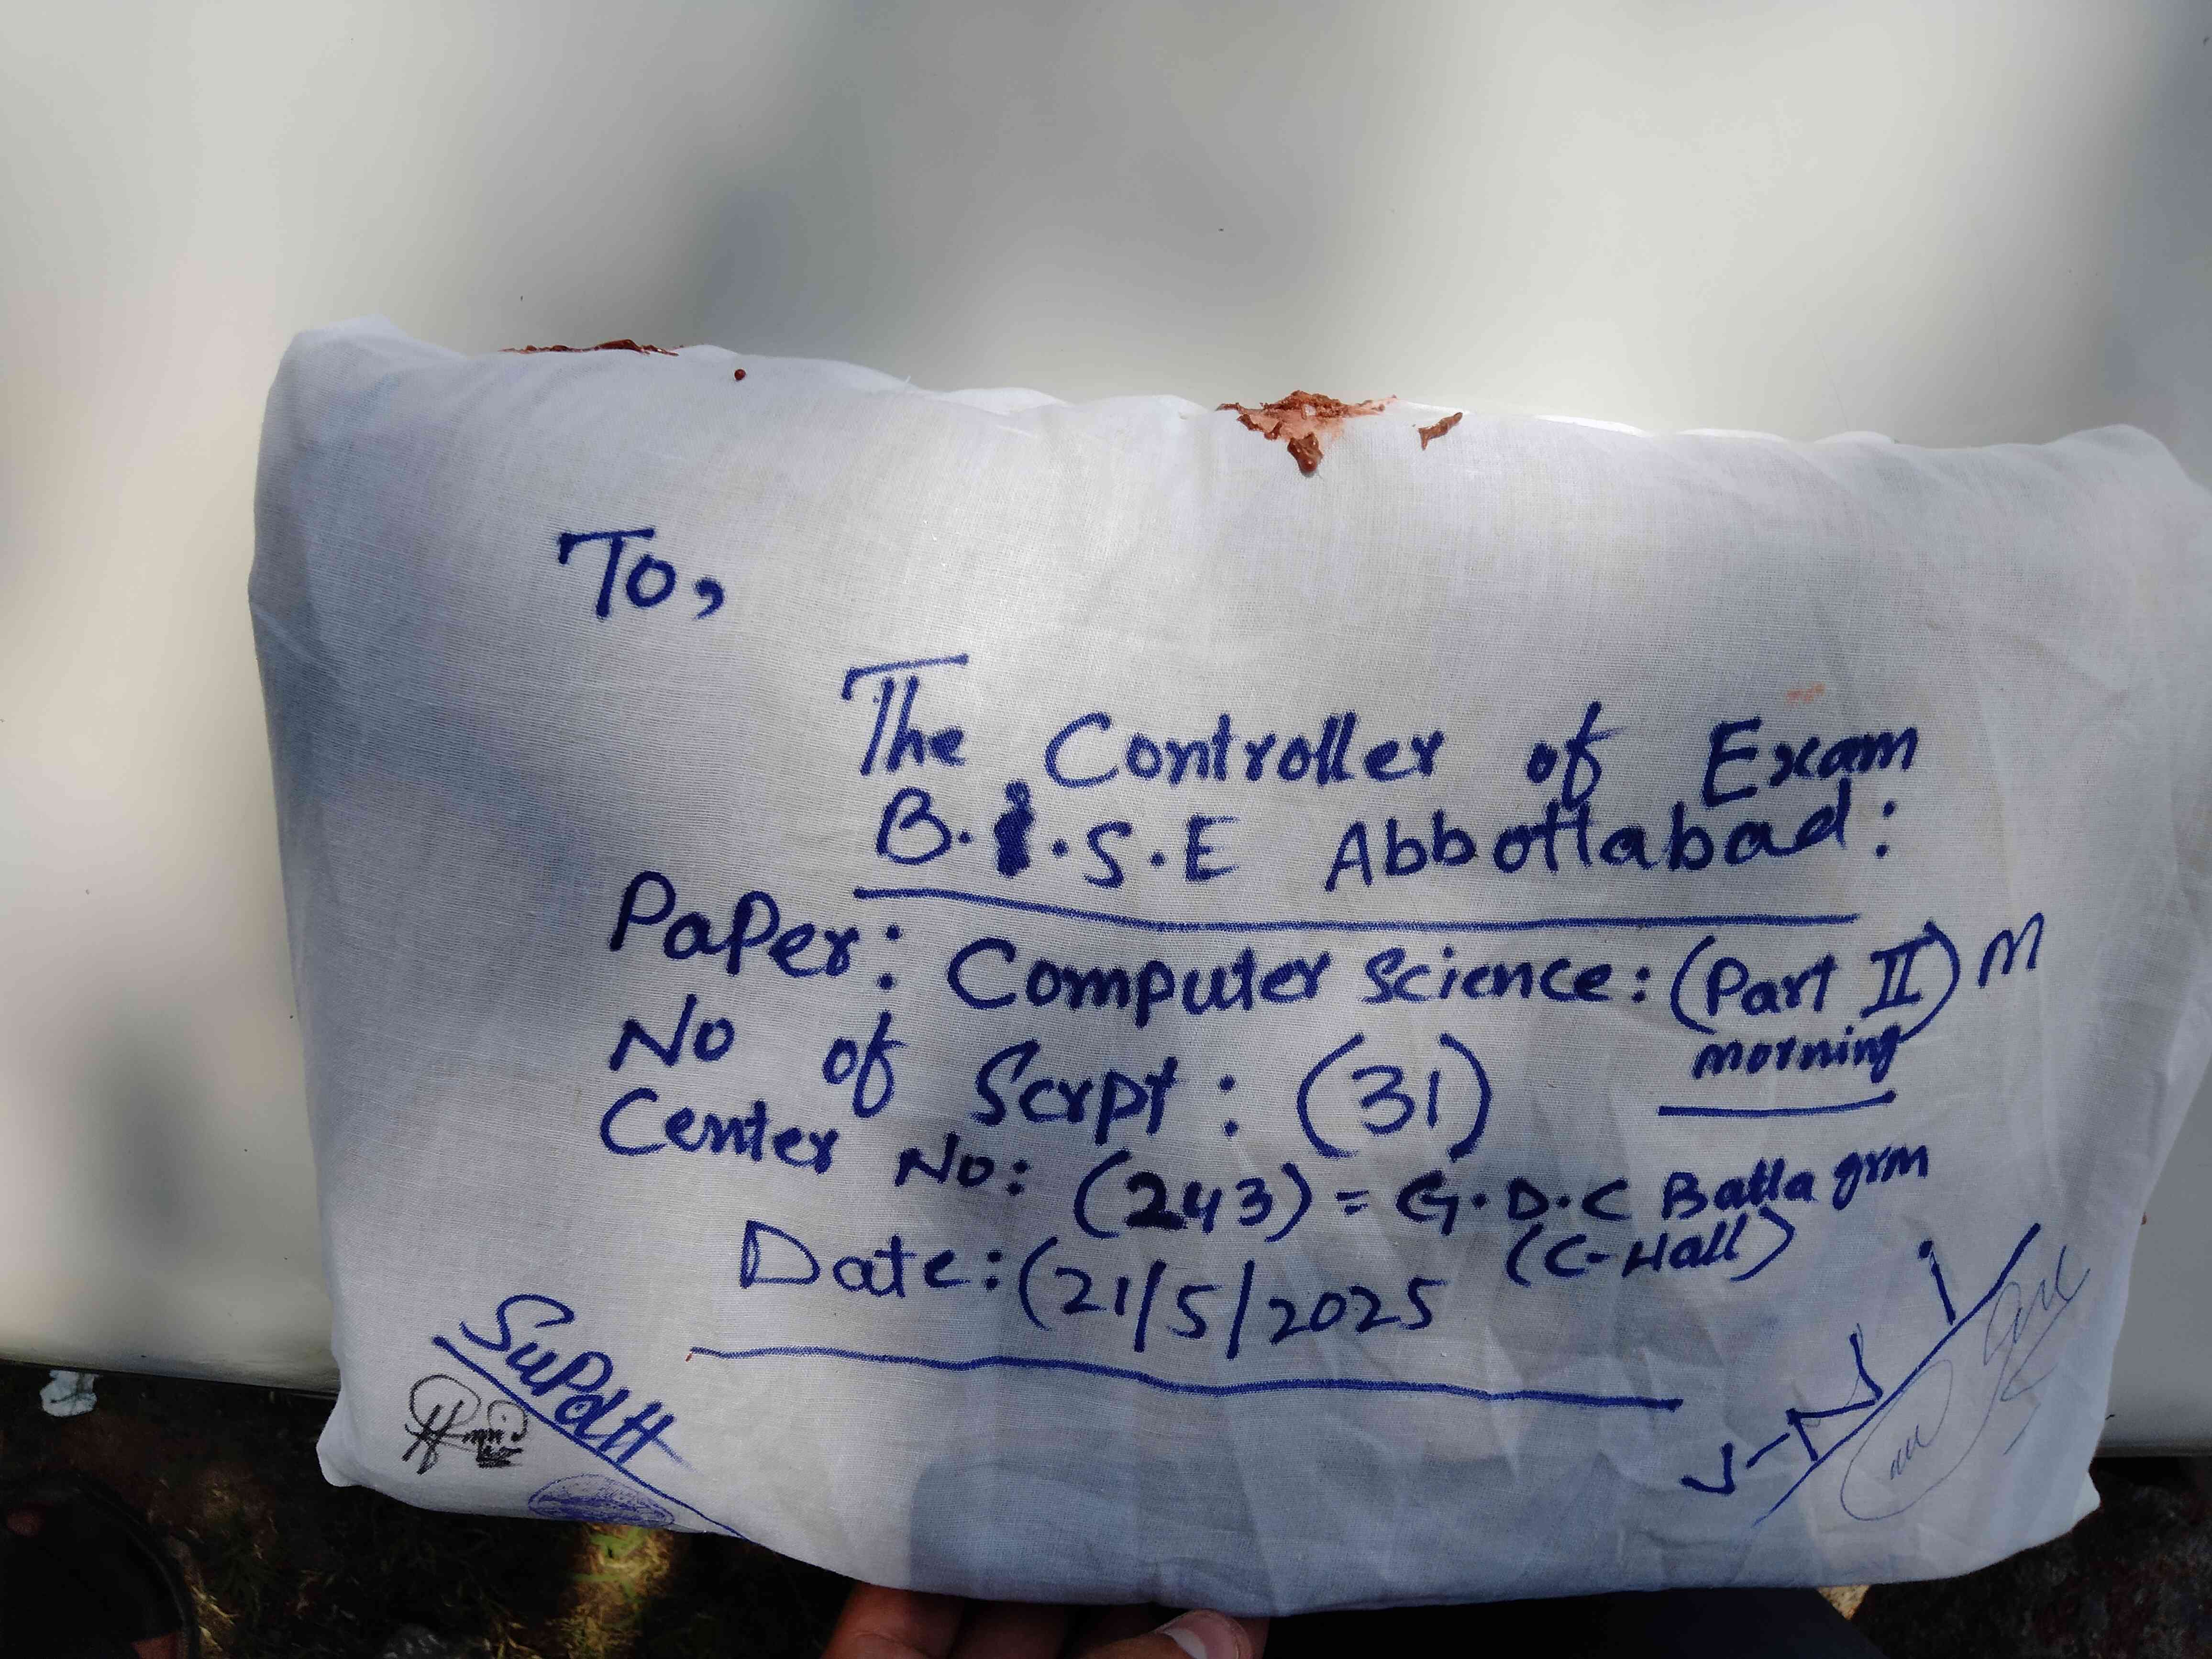 To,
The Controller of Exam
B.I.S.E Abbottabad:
Paper: Computer Science: (Part II) M
morning
No of Scrpt: (31)
Center No: (243) = G.D.C Batta grm
(C-Hall)
Date: (21/5/2025
SupdH